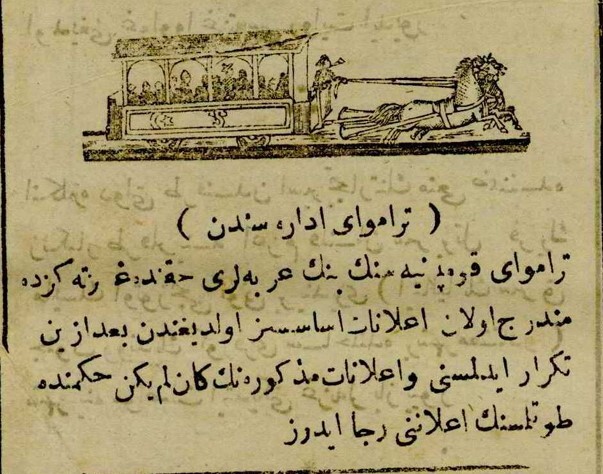 ( تراموای اداره سندن )
تراموای قومپانیه سنك بنك عربه لری حقنده غزته كزده
مندرج اولان اعلانات اساسسز اولدیغندن بعدازین
تكرار ایدلمسنی واعلانات مذكوره نك كان لم یكن حكمنده
طوتلمسنك اعلاننی رجا ایدرز